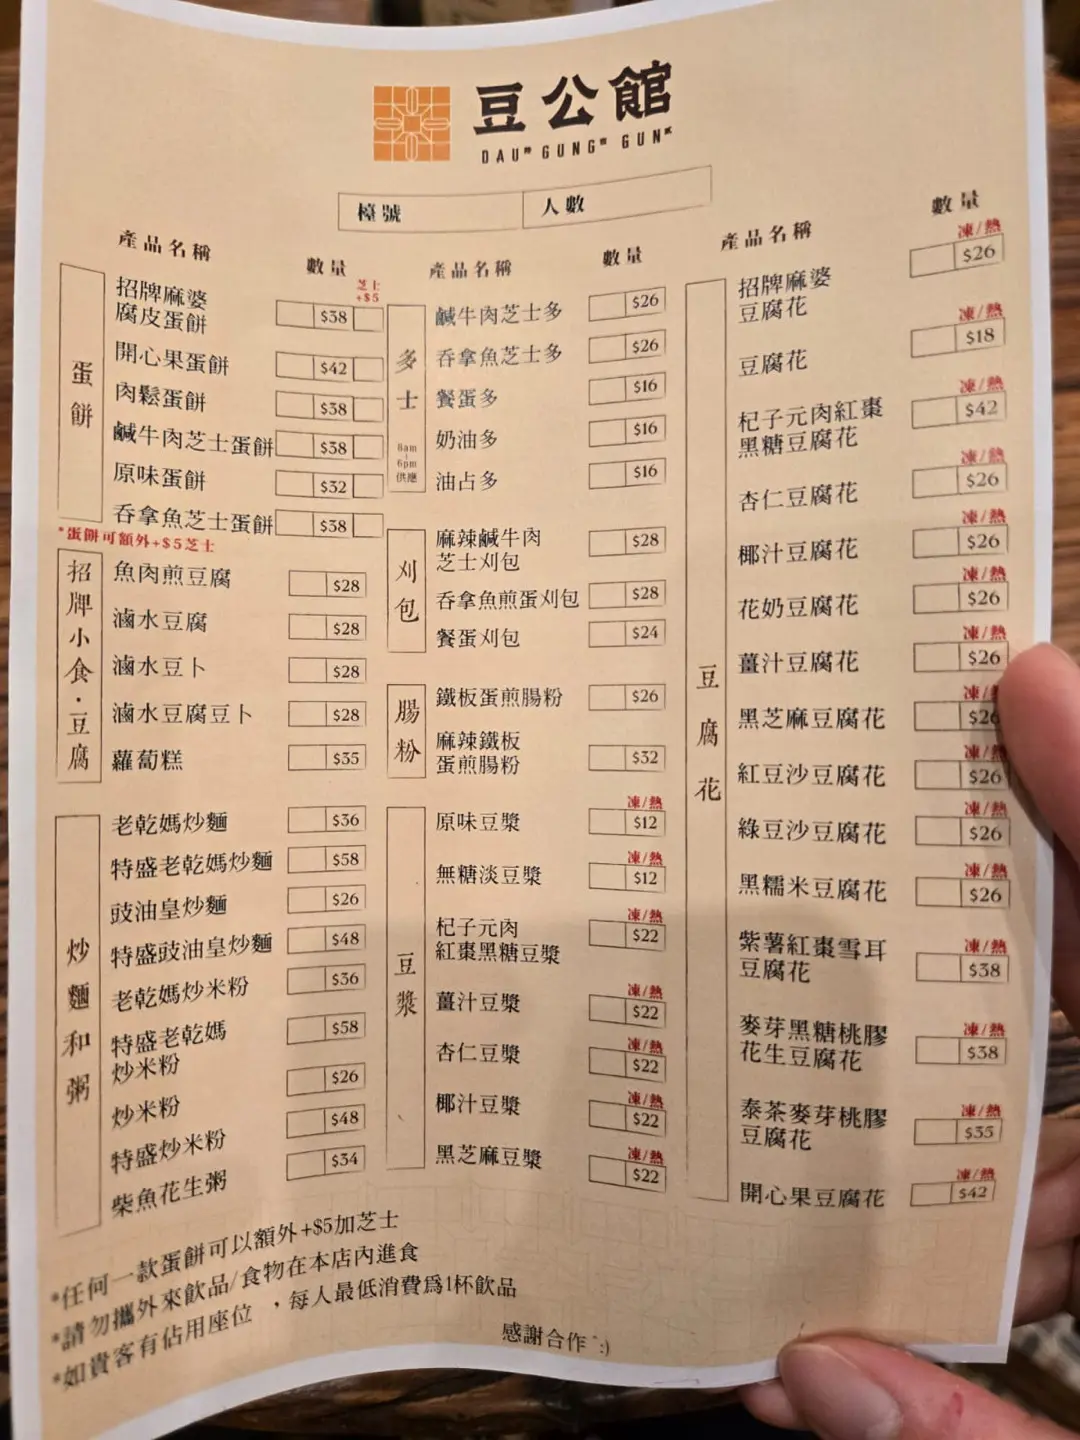 豆公館
DAU GUNG GUN
檯號 人數
產品名稱 數量
芝士
+$5
蛋餅
招牌麻婆
腐皮蛋餅 $38
開心果蛋餅 $42
肉鬆蛋餅 $38
鹹牛肉芝士蛋餅 $38
原味蛋餅 $32
吞拿魚芝士蛋餅 $38
*蛋餅可額外+$5芝士
招牌小食·豆腐
魚肉煎豆腐 $28
滷水豆腐 $28
滷水豆卜 $28
滷水豆腐豆卜 $28
蘿蔔糕 $35
炒麵和粥
老乾媽炒麵 $36
特盛老乾媽炒麵 $58
豉油皇炒麵 $26
特盛豉油皇炒麵 $48
老乾媽炒米粉 $36
特盛老乾媽
炒米粉 $58
炒米粉 $26
特盛炒米粉 $48
柴魚花生粥 $34
產品名稱 數量
多士
8am
-
6pm
供應
鹹牛肉芝士多 $26
吞拿魚芝士多 $26
餐蛋多 $16
奶油多 $16
油占多 $16
刈包
麻辣鹹牛肉
芝士刈包 $28
吞拿魚煎蛋刈包 $28
餐蛋刈包 $24
腸粉
鐵板蛋煎腸粉 $26
麻辣鐵板
蛋煎腸粉 $32
豆漿
凍/熱
原味豆漿 $12
凍/熱
無糖淡豆漿 $12
凍/熱
杞子元肉
紅棗黑糖豆漿 $22
凍/熱
薑汁豆漿 $22
凍/熱
杏仁豆漿 $22
凍/熱
椰汁豆漿 $22
凍/熱
黑芝麻豆漿 $22
產品名稱 數量
豆腐花
凍/熱
招牌麻婆
豆腐花 $26
凍/熱
豆腐花 $18
凍/熱
杞子元肉紅棗
黑糖豆腐花 $42
凍/熱
杏仁豆腐花 $26
凍/熱
椰汁豆腐花 $26
凍/熱
花奶豆腐花 $26
凍/熱
薑汁豆腐花 $26
凍/熱
黑芝麻豆腐花 $26
凍/熱
紅豆沙豆腐花 $26
凍/熱
綠豆沙豆腐花 $26
凍/熱
黑糯米豆腐花 $26
凍/熱
紫薯紅棗雪耳
豆腐花 $38
凍/熱
麥芽黑糖桃膠
花生豆腐花 $38
凍/熱
泰茶麥芽桃膠
豆腐花 $35
凍/熱
開心果豆腐花 $42
*任何一款蛋餅可以額外+$5加芝士
*請勿攜外來飲品/食物在本店內進食
*如貴客有佔用座位，每人最低消費爲1杯飲品
感謝合作 :)